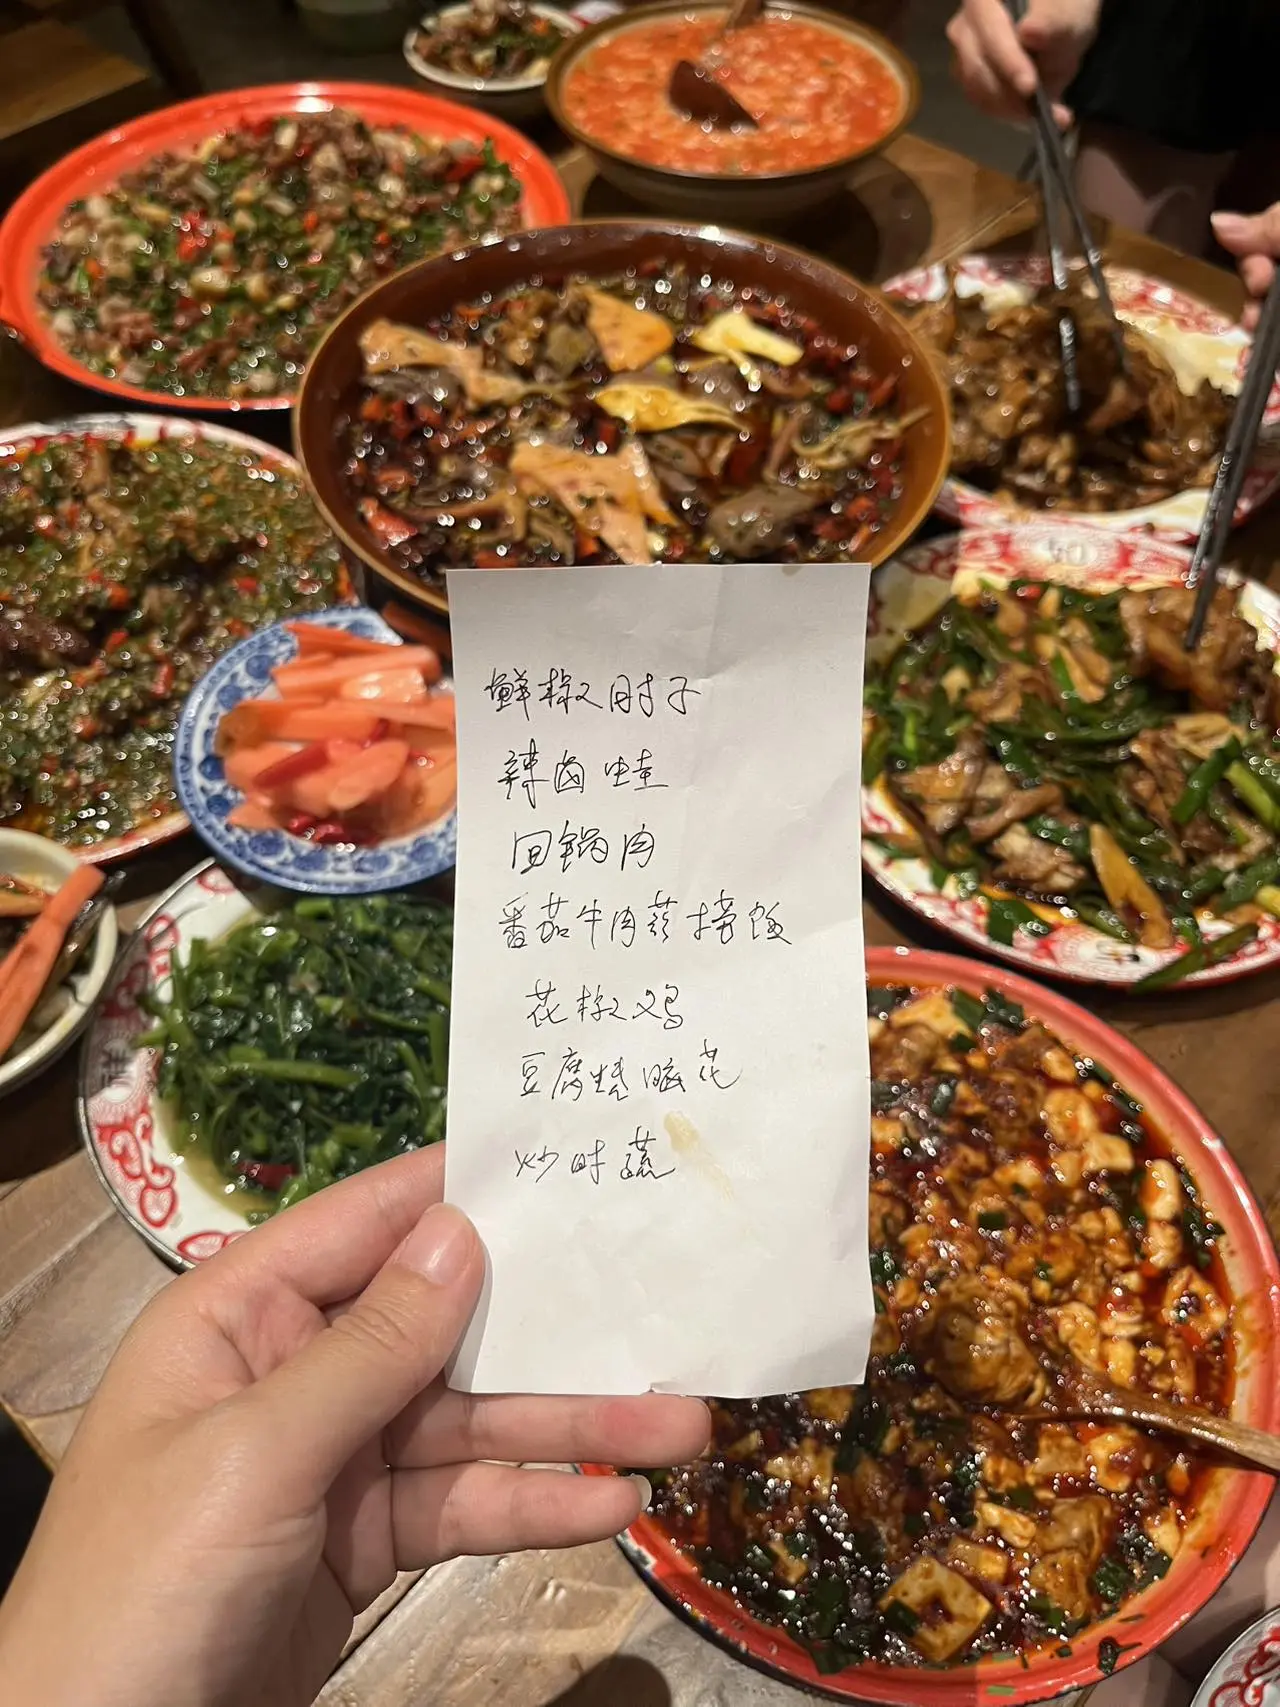 鲜椒肘子
辣卤蛙
回锅肉
番茄牛肉捞饭
花椒鸡
豆腐烧脑花
炒时蔬